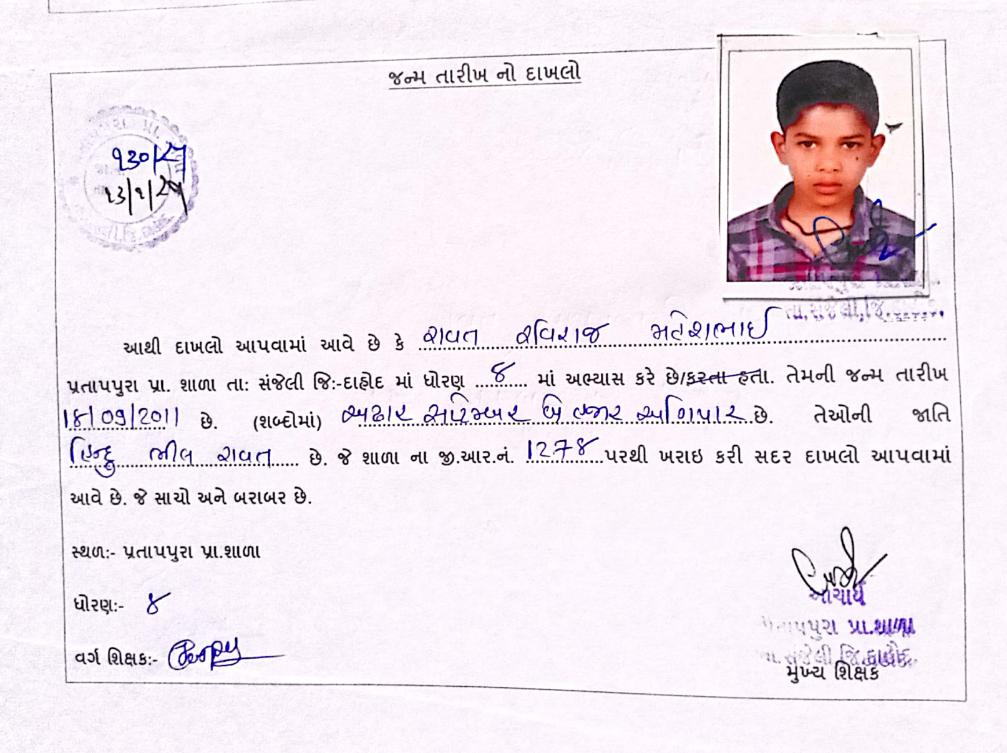 જન્મ તારીખ નો દાખલો
૧૩૦/૨૫
૨૩/૧/૨૫
તા.સંજેલી,જિ.
આથી દાખલો આપવામાં આવે છે કે રાવત રવિરાજ મહેશભાઈ
પ્રતાપપુરા પ્રા. શાળા તા: સંજેલી જિ:-દાહોદ માં ધોરણ ૮ માં અભ્યાસ કરે છે/કરતા હતા. તેમની જન્મ તારીખ
18/09/2011 છે. (શબ્દોમાં) અઢાર સપ્ટેમ્બર બે હજાર અગિયાર છે. તેઓની જાતિ
હિન્દુ ભીલ રાવત છે. જે શાળા ના જી.આર.નં. 127૪ પરથી ખરાઇ કરી સદર દાખલો આપવામાં
આવે છે. જે સાચો અને બરાબર છે.
સ્થળ:- પ્રતાપપુરા પ્રા.શાળા
ધોરણ:- ૮
વર્ગ શિક્ષક:-
આચાર્ય
પ્રતાપપુરા પ્રા.શાળા
તા.સંજેલી જિ.દાહોદ
મુખ્ય શિક્ષક